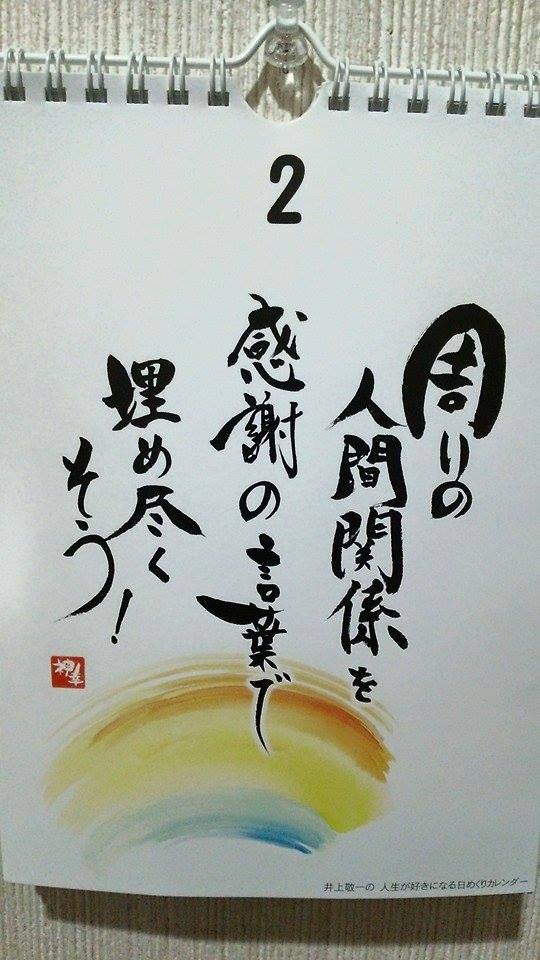 2
周りの
人間関係を
感謝の言葉で
埋め尽く
そう!
井上敬一の 人生が好きになる日めくりカレンダー